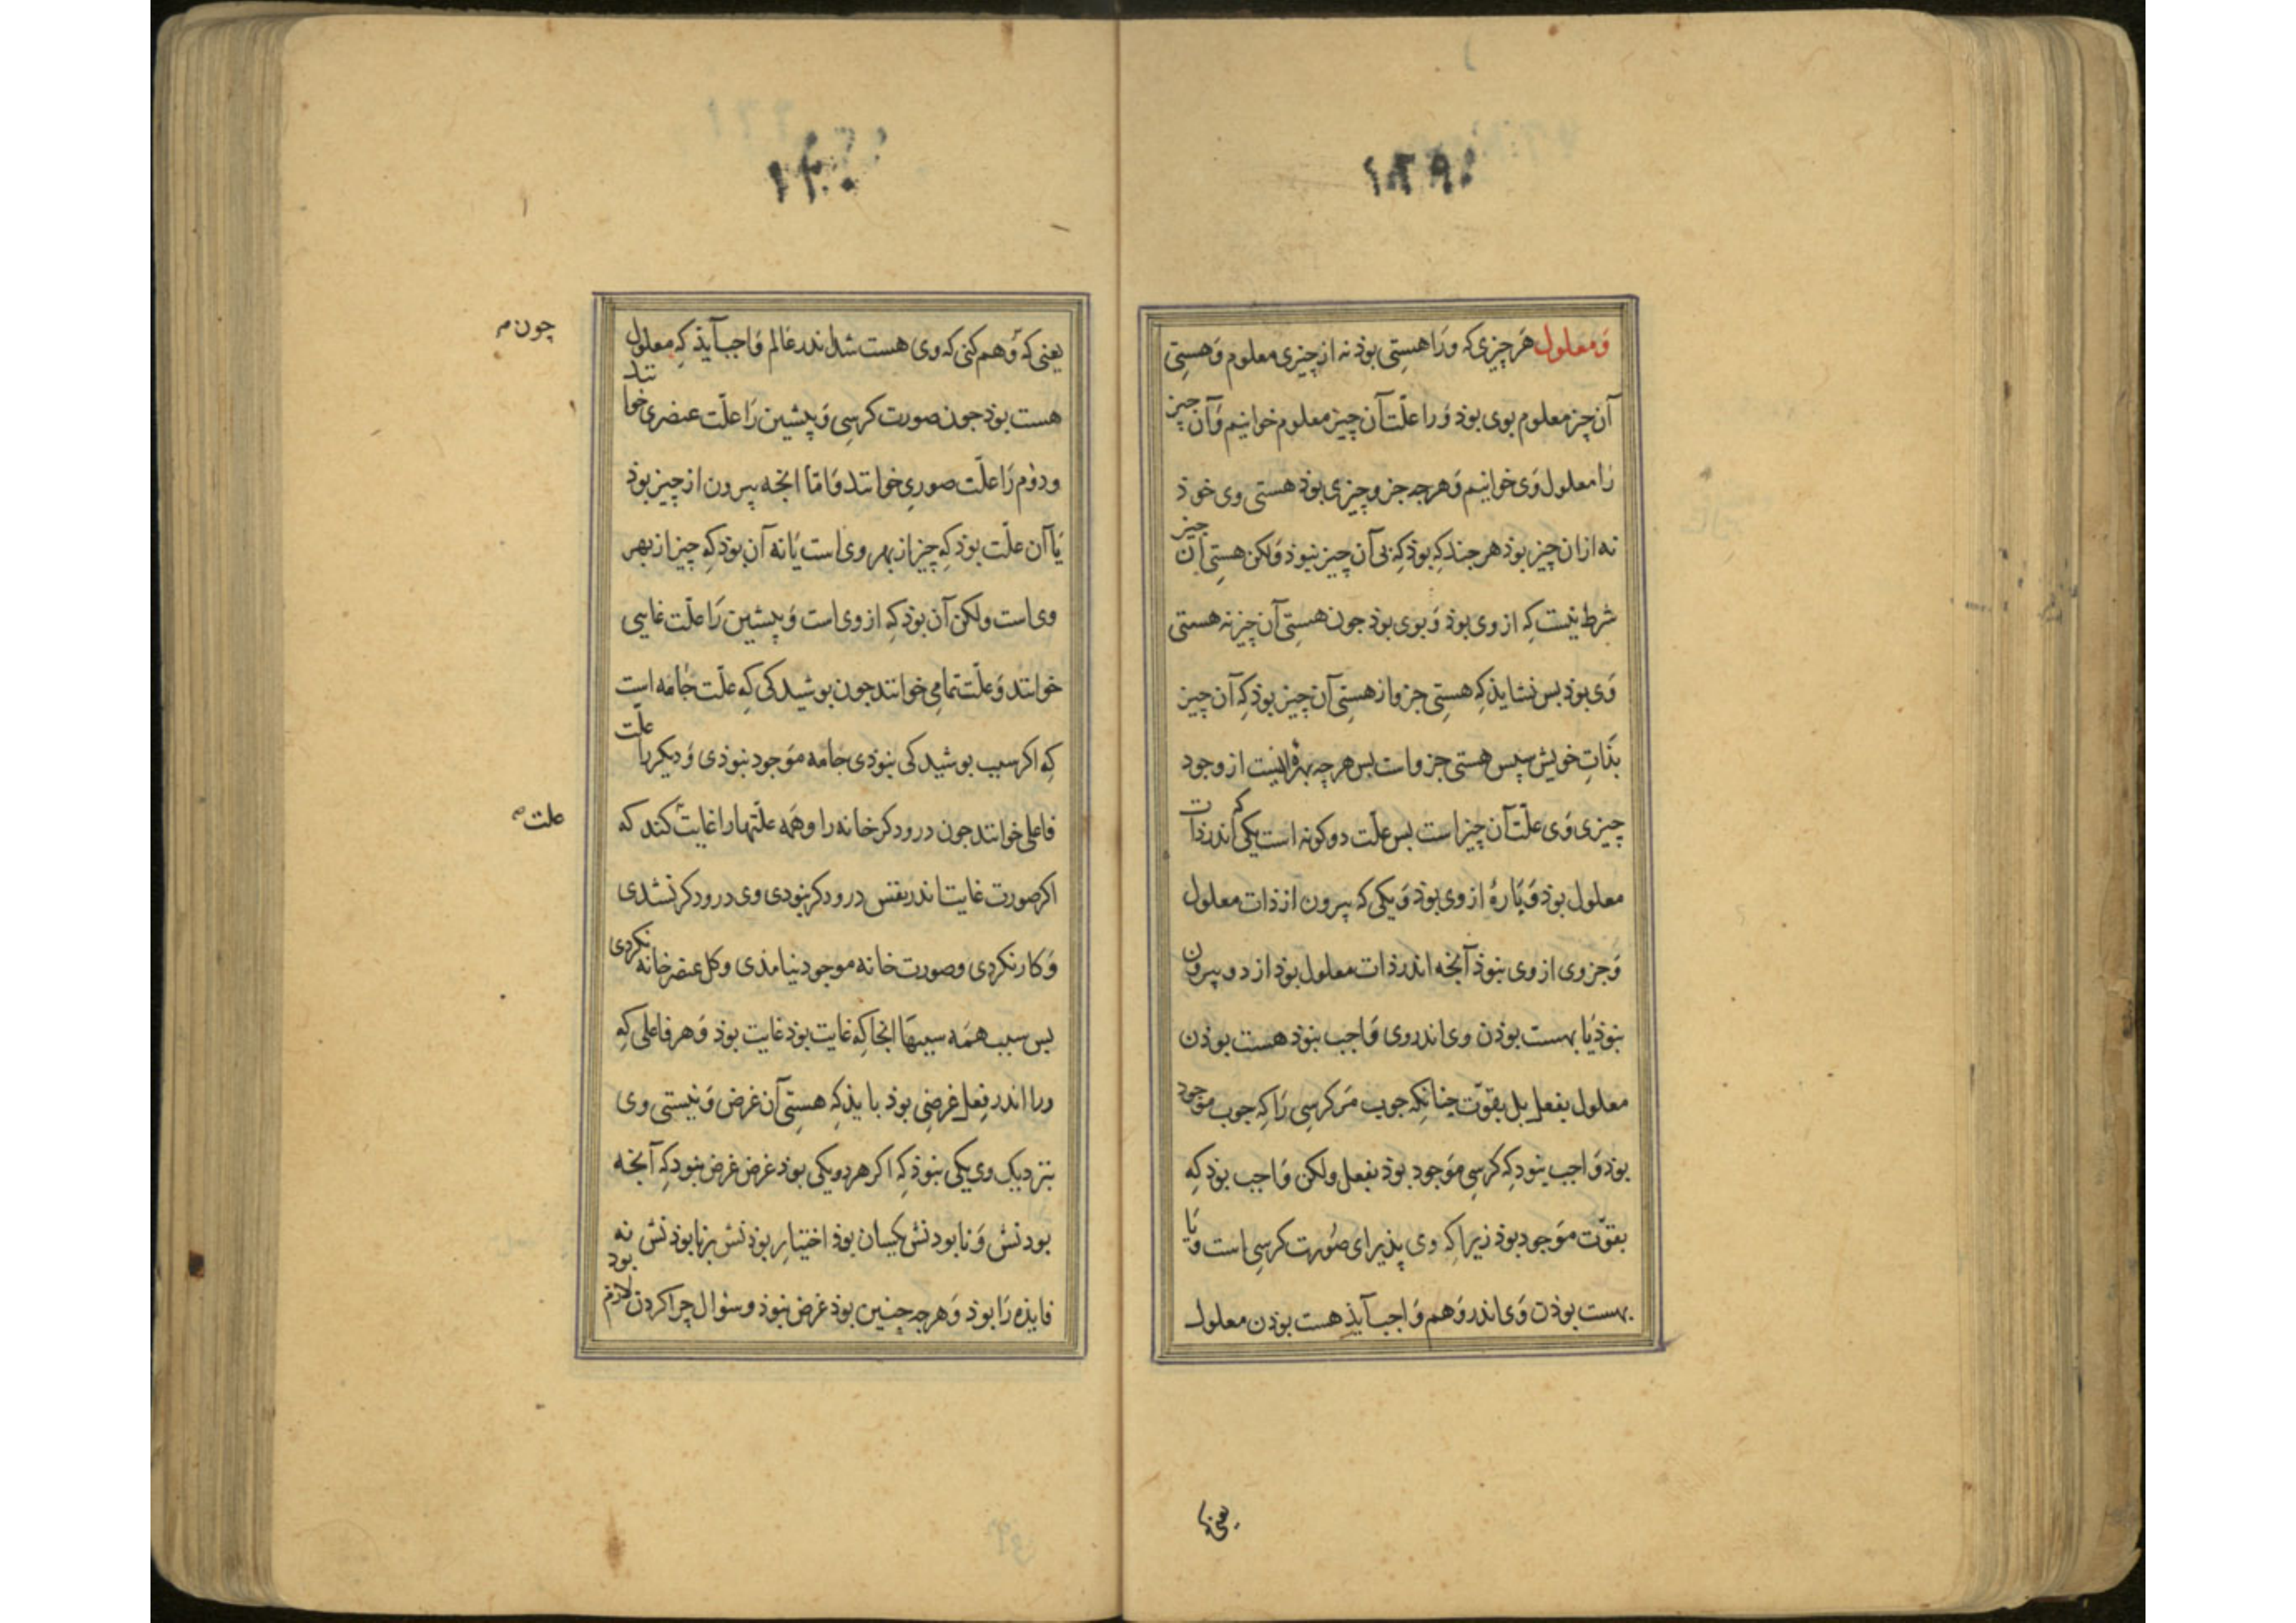 ۱۳۹
و معلول هر چیزی که ورا هستی بوذ نه از چیزی معلوم و هستی
آن چیز معلوم بوی بوذ ورا علّت آن چیز معلوم خوانیم و آن چیز
را معلول وی خوانیم و هرچه جزو چیزی بوذ هستی وی خوذ
نه ازان چیز بوذ هر جند که بوذ که بی آن چیز نبوذ ولکن هستی آن چیز
شرط نیست که از وی بوذ و بوی بوذ جون هستی آن چیز نه هستی
وی بوذ بس نشایذ که هستی جزو از هستی آن چیز بوذ که آن چیز
بذات خویش سپس هستی جزو است بس هرچه بهره نیست از وجود
چیزی وی علّت آن چیز است بس علّت دو کونه است یکی که اندر ذات
معلول بوذ و پارهٔ از وی بوذ و یکی که بیرون از ذات معلول
و جزوی از وی نبوذ آنجه اندر ذات معلول بوذ از دو بیرون
نبوذ یا بهست بوذن وی اندر وی واجب نبوذ هست بوذن
معلول بفعل بل بقوّت چنانکه جوب مر کرسی را که جوب موجود
بوذ واجب نبود که کرسی موجود بوذ بفعل ولکن واجب بوذ که
بقوّت موجود بوذ زیرا که وی پذیرای صورت کرسی است و یا
بهست بوذن وی اندر وهم واجب آیذ هست بوذن معلول
یعنی
۱۴۰
یعنی که وهم کنی که وی هست شد اندر عالم واجب آیذ که معلول
چون
هست بوذ جون صورت کرسی و پیشین را علّت عنصری خوانند
ودوم را علّت صوری خوانند و امّا انجه بیرون از چیز بوذ
یا آن علّت بوذ که چیز از بهر وی است یا نه آن بوذ که چیز از بهر
وی است ولکن آن بوذ که از وی است و پیشین را علّت غایی
خوانند و علّت تمامی خوانند جون بوشیدکی که علّت جامه است
که اکر سبب بوشیدکی نبوذی جامه موجود نبوذی و دیکر را علّت
فاعلی خوانند جون درودکر خانه را وهمه علّتها را غایت کند که
علت
اکر صورت غایت اندر نفس درودکر نبودی وی درودکر نشدی
و کار نکردی و صورت خانه موجود نیامذی و کل عنصر خانه نکردی
بس سبب همه سببها انجا که غایت بوذ غایت بوذ و هر فاعلی که
ورا اندر فعل غرضی بوذ بایذ که هستی آن غرض و نیستی وی
بنزدیک وی یکی نبوذ که اکر هر دو یکی بوذ غرض غرض نبود که آنجه
بودنش و نابودنش یکسان بوذ اختیار بوذنش بر نابوذنش نه
فایذه را بوذ و هرجه چنین بوذ غرض نبوذ و سؤال چرا کردن لازم بود